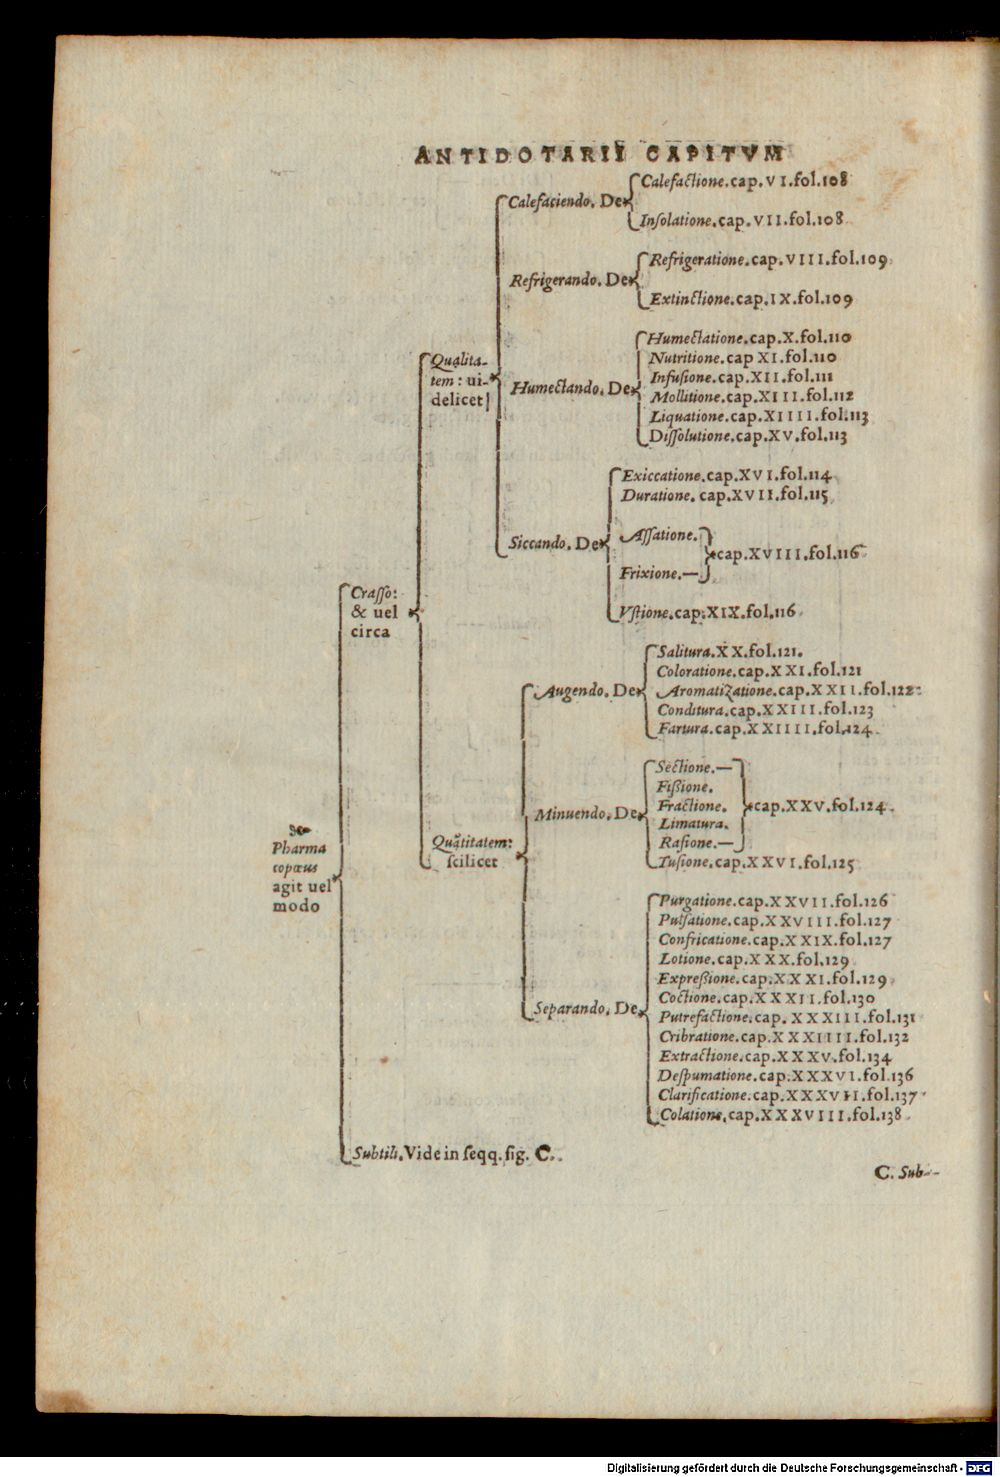 ANTIDOTARII CAPITVM
Pharma
copœus
agit uel
modo
Craſſo:
& uel
circa
Qualita-
tem: ui-
delicet
Calefaciendo. De
Calefactione. cap. VI. fol. 108
Inſolatione. cap. VII. fol. 108
Refrigerando. De
Refrigeratione. cap. VIII. fol. 109
Extinctione. cap. IX. fol. 109
Humectando. De
Humectatione. cap. X. fol. 110
Nutritione. cap XI. fol. 110
Infuſione. cap. XII. fol. 111
Mollitione. cap. XIII. fol. 112
Liquatione. cap. XIIII. fol. 113
Diſſolutione. cap. XV. fol. 113
Siccando. De
Exiccatione. cap. XVI. fol. 114
Duratione. cap. XVII. fol. 115
Aſſatione.
Frixione.—
cap. XVIII. fol. 116
Vſtione. cap. XIX. fol. 116
Quãtitatem:
ſcilicet
Augendo. De
Salitura. XX. fol. 121.
Coloratione. cap. XXI. fol. 121
Aromatizatione. cap. XXII. fol. 122
Conditura. cap. XXIII. fol. 123
Fartura. cap. XXIIII. fol. 124
Minuendo. De
Sectione.—
Fißione.
Fractione.
Limatura.
Raſione.—
cap. XXV. fol. 124
Tuſione. cap. XXVI. fol. 125
Separando. De
Purgatione. cap. XXVII. fol. 126
Pulſatione. cap. XXVIII. fol. 127
Confricatione. cap. XXIX. fol. 127
Lotione. cap. XXX. fol. 129
Expreßione. cap. XXXI. fol. 129
Coctione. cap. XXXII. fol. 130
Putrefactione. cap. XXXIII. fol. 131
Cribratione. cap. XXXIIII. fol. 132
Extractione. cap. XXXV. fol. 134
Deſpumatione. cap. XXXVI. fol. 136
Clarificatione. cap. XXXVII. fol. 137
Colatione. cap. XXXVIII. fol. 138
Subtili. Vide in ſeqq. ſig. C.
C. Sub-
Digitalisierung gefördert durch die Deutsche Forschungsgemeinschaft - DFG